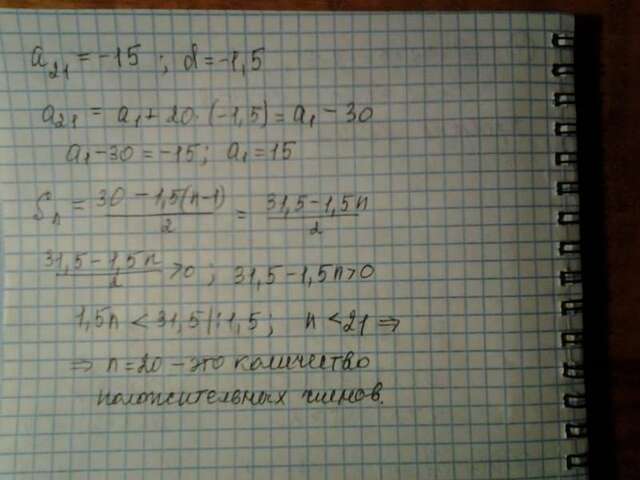 a₂₁ = -15 ; d = -1,5
a₂₁ = a₁ + 20 · (-1,5) = a₁ - 30
a₁ - 30 = -15 ; a₁ = 15
Sₙ = (30 - 1,5(n-1))/2 = (31,5 - 1,5n)/2
(31,5 - 1,5n)/2 > 0 ; 31,5 - 1,5n > 0
1,5n < 31,5 | : 1,5 ; n < 21 ⇒
⇒ n = 20 - это количество
положительных членов.